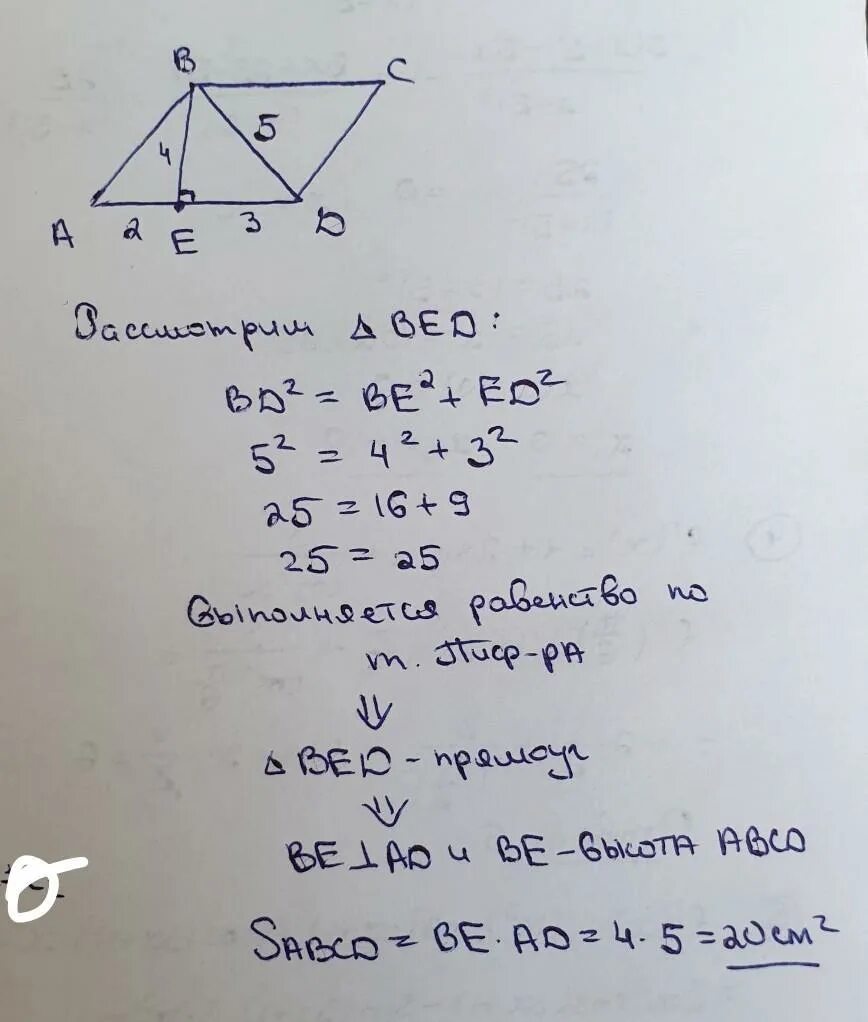 B C
4 5
A 2 E 3 D
Рассмотрим Δ BED:
BD² = BE² + ED²
5² = 4² + 3²
25 = 16 + 9
25 = 25
Выполняется равенство по
т. Пиф-ра
⇓
Δ BED - прямоуг
⇓
BE ⊥ AD и BE - высота ABCD
SABCD = BE · AD = 4 · 5 = 20 см²